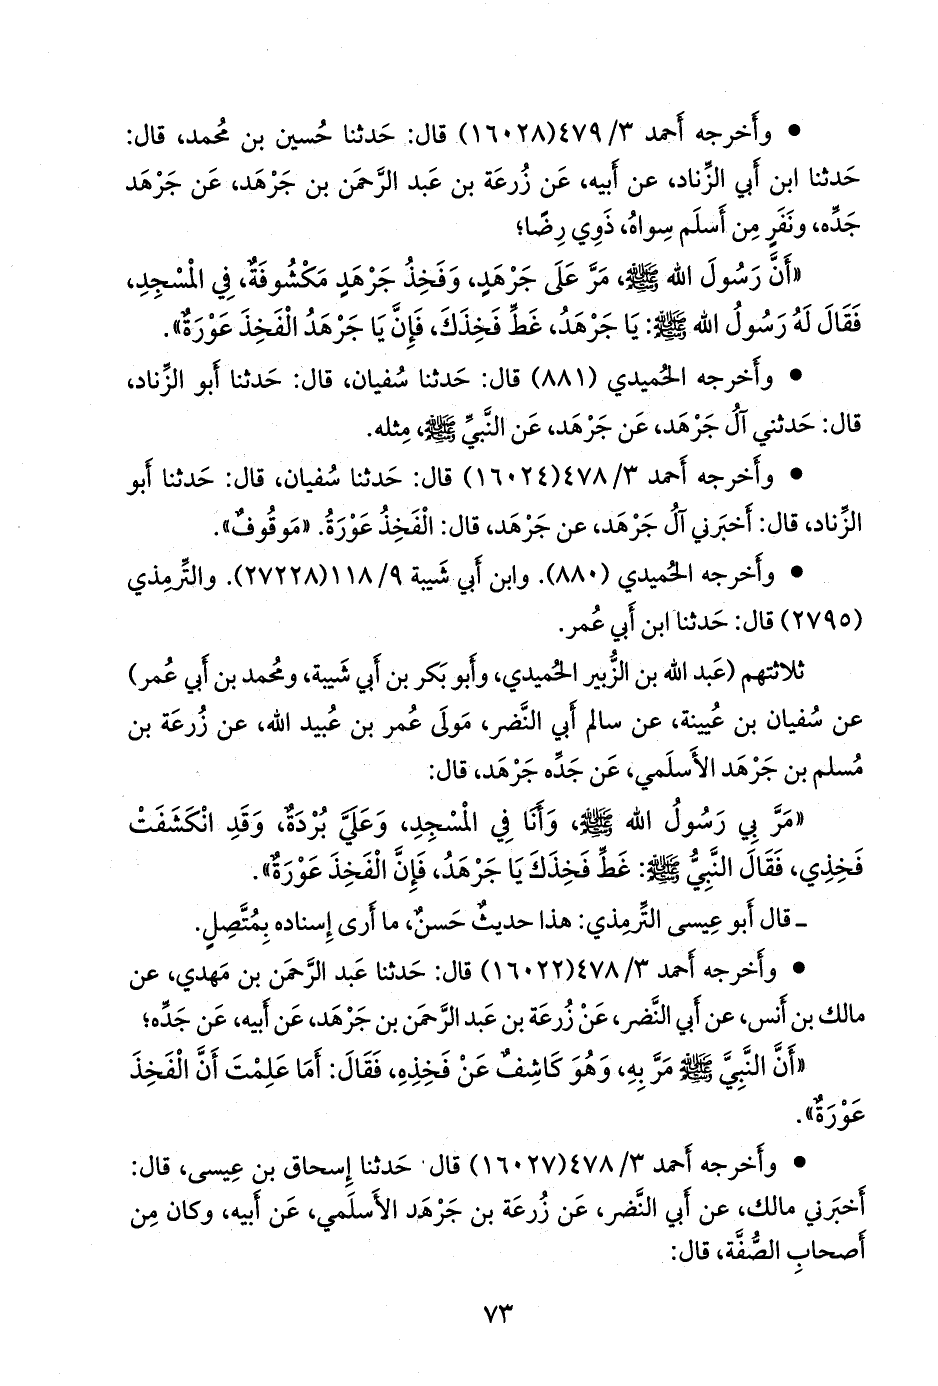 • وأَخرجه أَحمد ٣/ ٤٧٩(١٦٠٢٨) قال: حَدثنا حُسين بن مُحمد، قال:
حَدثنا ابن أَبي الزِّناد، عن أَبيه، عَن زُرعَة بن عَبد الرَّحمَن بن جَرْهَد، عَن جَرْهَد
جَدِّه، ونَفَرٍ مِن أَسلَم سِواهُ، ذَوِي رِضًا؛
«أَنَّ رَسُولَ الله ﷺ، مَرَّ عَلَى جَرْهَدٍ، وَفَخِذُ جَرْهَدٍ مَكْشُوفَةٌ، فِي الْمَسْجِدِ،
فَقَالَ لَهُ رَسُولُ الله ﷺ: يَا جَرْهَدُ، غَطِّ فَخِذَكَ، فَإِنَّ يَا جَرْهَدُ الْفَخِذَ عَوْرَةٌ».
• وأَخرجه الحُميدي (٨٨١) قال: حَدثنا سُفيان، قال: حَدثنا أَبو الزِّناد،
قال: حَدثني آلُ جَرْهَد، عَن جَرْهَد، عَن النَّبيِّ ﷺ، مِثله.
• وأَخرجه أَحمد ٣/ ٤٧٨(١٦٠٢٤) قال: حَدثنا سُفيان، قال: حَدثنا أَبو
الزِّناد، قال: أَخبَرني آلُ جَرْهَد، عن جَرْهَد، قال: الْفَخِذُ عَوْرَةُ. «مَوقُوفٌ».
• وأَخرجه الحُميدي (٨٨٠). وابن أَبي شَيبة ٩/ ١١٨(٢٧٢٢٨). والتِّرمِذي
(٢٧٩٥) قال: حَدثنا ابن أَبي عُمر.
ثلاثتهم (عَبد الله بن الزُّبير الحُميدي، وأَبو بَكر بن أَبي شَيبة، ومُحمد بن أَبي عُمر)
عن سُفيان بن عُيينة، عن سالم أَبي النَّضر، مَولَى عمر بن عُبيد الله، عن زُرعَة بن
مُسلم بن جَرْهَد الأَسلَمي، عَن جَدِّه جَرْهَد، قال:
«مَرَّ بِي رَسُولُ الله ﷺ، وَأَنَا فِي الْمَسْجِدِ، وَعَلَيَّ بُرْدَةٌ، وَقَدِ انْكَشَفَتْ
فَخِذِي، فَقَالَ النَّبِيُّ ﷺ: غَطِّ فَخِذَكَ يَا جَرْهَدُ، فَإِنَّ الْفَخِذَ عَوْرَةٌ».
ـ قال أَبو عِيسى التِّرمِذي: هذا حديثٌ حَسنٌ، ما أَرى إِسناده بِمُتَّصِلٍ.
• وأَخرجه أَحمد ٣/ ٤٧٨(١٦٠٢٢) قال: حَدثنا عَبد الرَّحمَن بن مَهدي، عن
مالك بن أَنس، عن أَبي النَّضر، عَنْ زُرعَة بن عَبد الرَّحمَن بن جَرْهَد، عَن أَبيه، عَن جَدِّه؛
«أَنَّ النَّبِيَّ ﷺ مَرَّ بِهِ، وَهُوَ كَاشِفٌ عَنْ فَخِذِهِ، فَقَالَ: أَمَا عَلِمْتَ أَنَّ الْفَخِذَ
عَوْرَةٌ».
• وأَخرجه أَحمد ٣/ ٤٧٨(١٦٠٢٧) قال حَدثنا إِسحاق بن عِيسى، قال:
أَخبَرني مالك، عن أَبي النَّضر، عَن زُرعَة بن جَرْهَد الأَسلَمي، عَن أَبيه، وكان مِن
أَصحابِ الصُّفَّة، قال:
٧٣